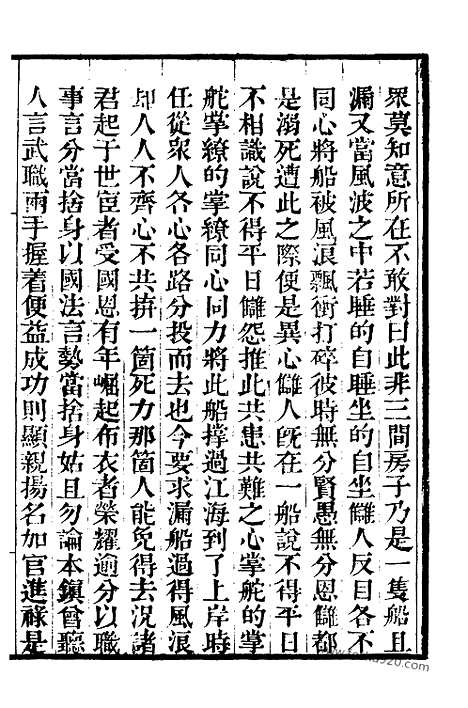 衆莫知意所在不敢對曰此非三間房子乃是一隻船且
漏又當風波之中若睡的自睡坐的自坐讎人反目各不
同心將船被風浪飄衝打碎彼時無分賢愚無分恩讎都
是溺死遭此之際便是異心讎人旣在一船說不得平日
不相識說不得平日讎怨推此共患共難之心掌舵的掌
舵掌繚的掌繚同心同力將此船撑過江海到了上岸時
任從衆人各心各路分投而去也今要求漏船過得風浪
却人人不齊心不共拚一箇死力那箇人能免得去況諸
君起于世宦者受國恩有年崛起布衣者榮耀逾分以職
事言分當捨身以國法言勢當捨身姑且勿論本鎮曾聽
人言武職兩手握着便益成功則顯親揚名加官進祿是